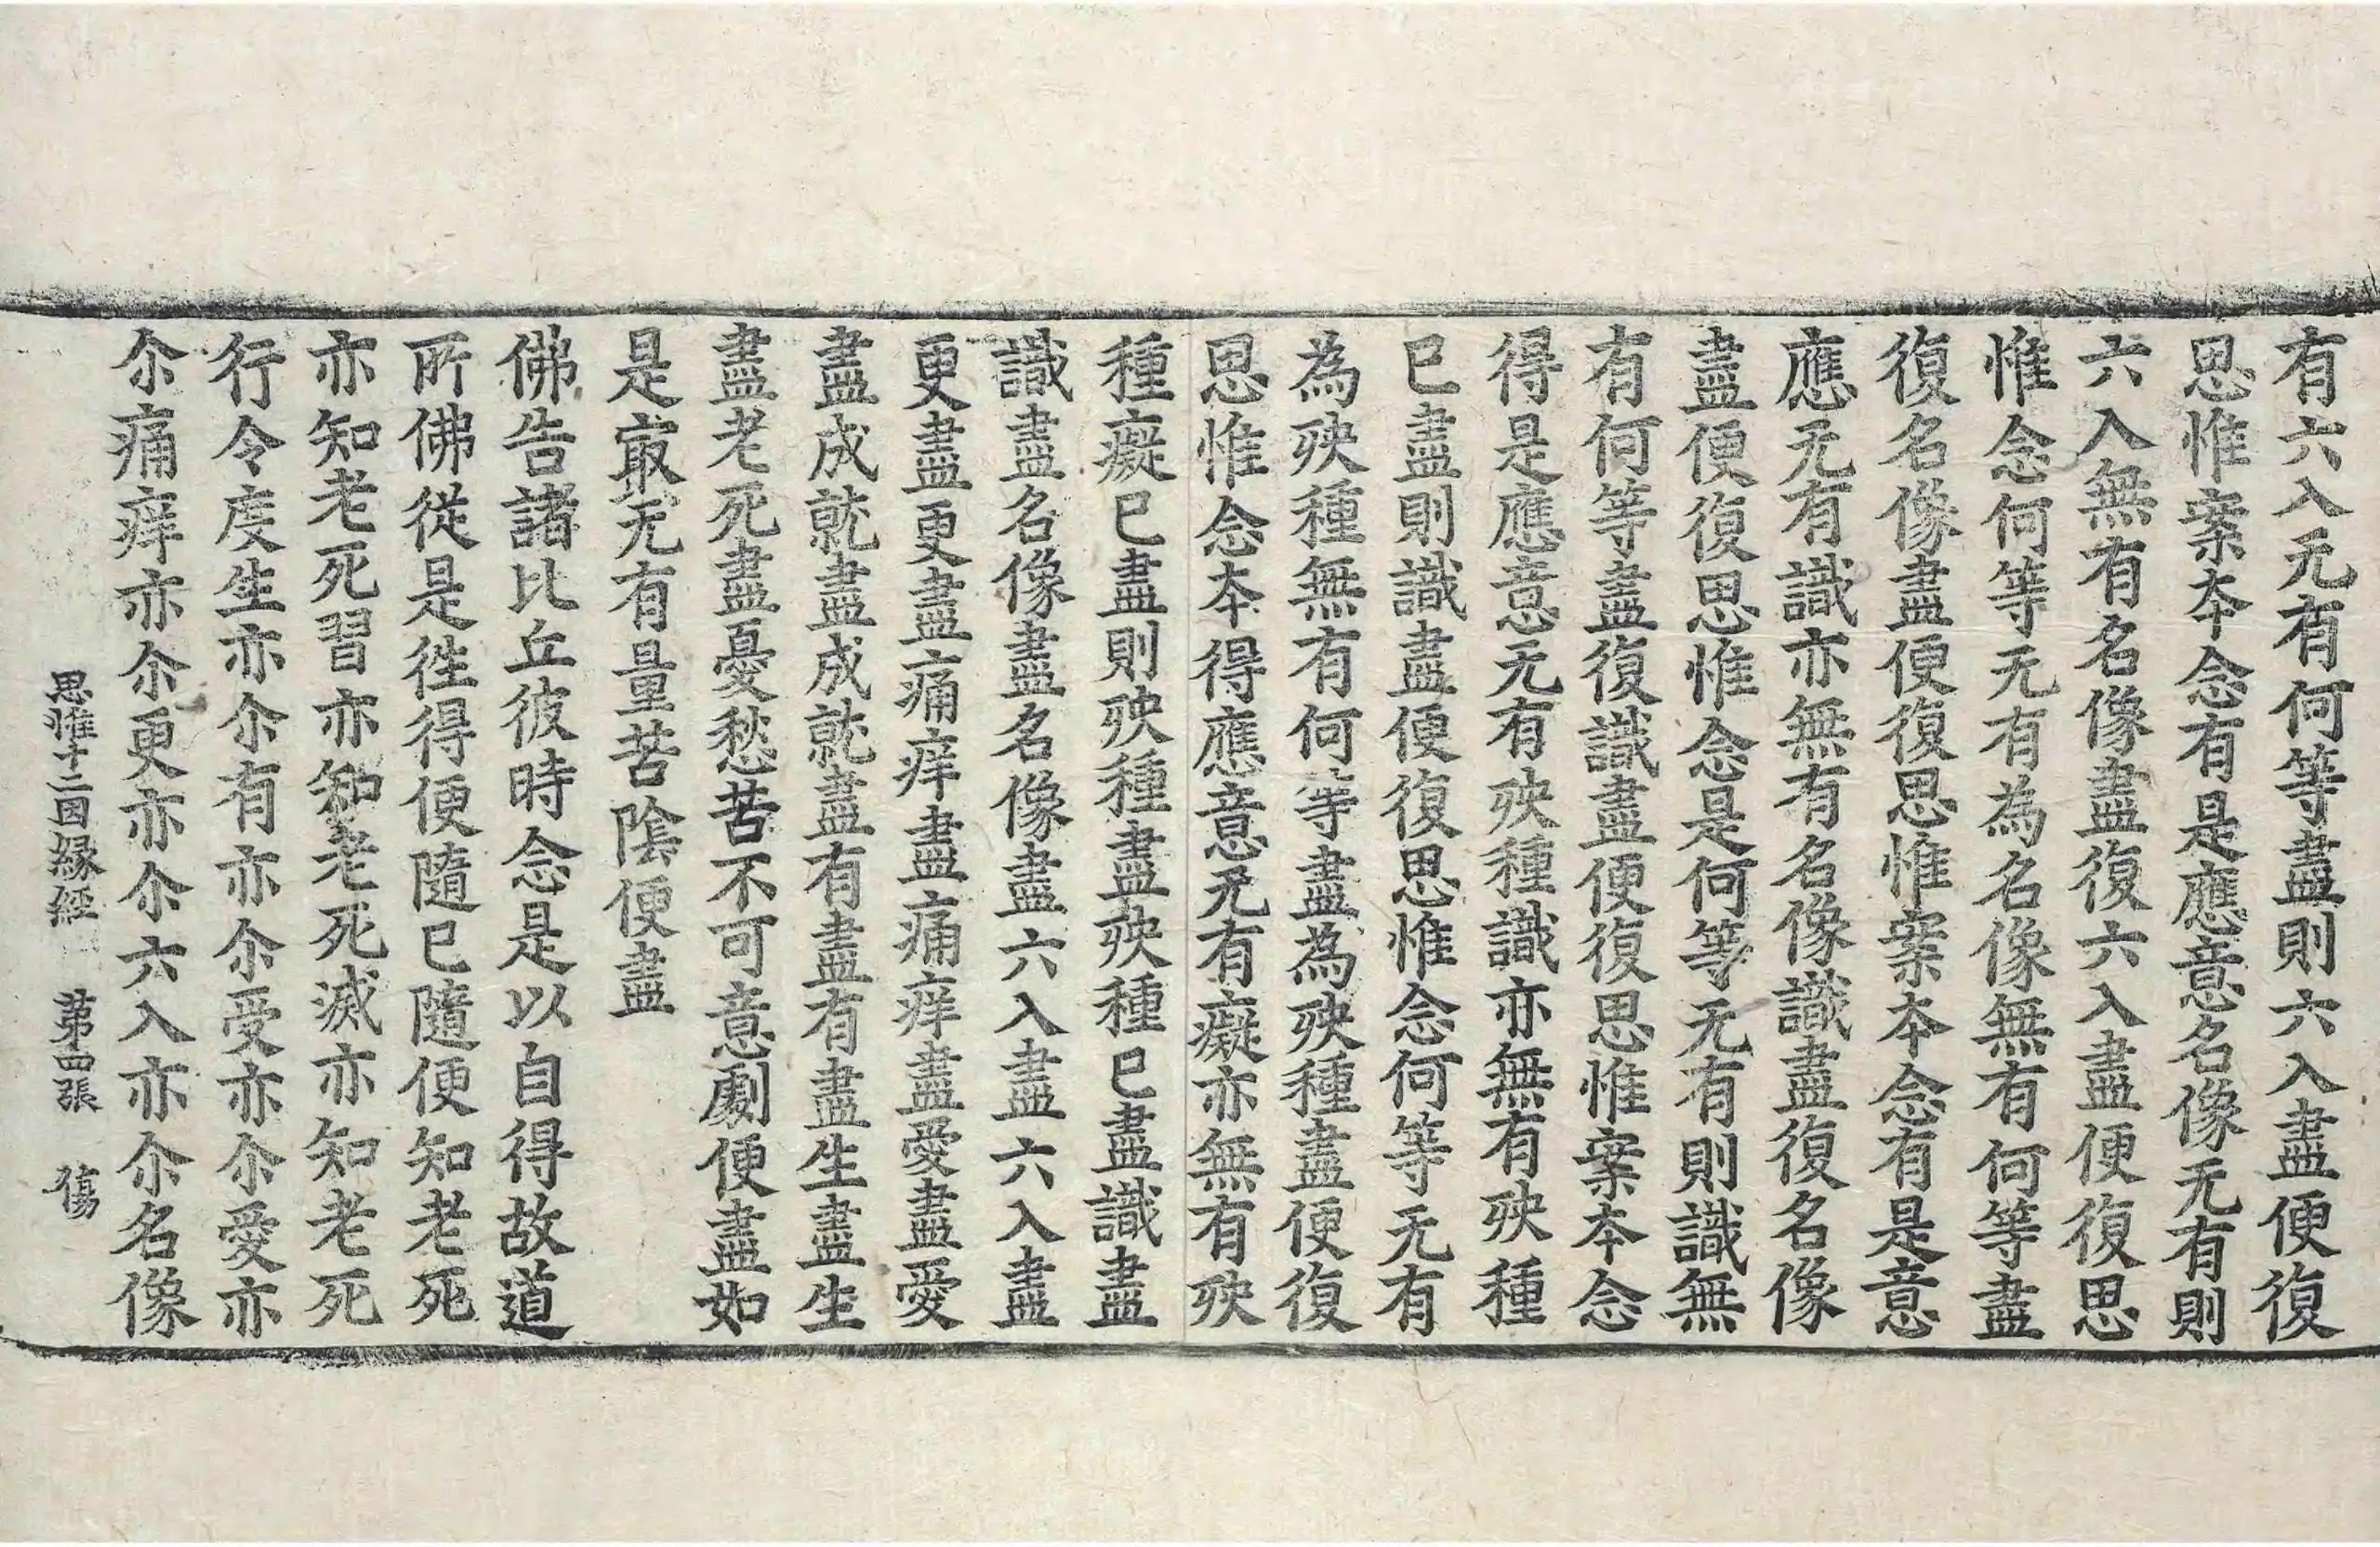 有六入无有何等盡則六入盡便復
思惟案本念有是應意名像无有則
六入無有名像盡復六入盡便復思
惟念何等无有為名像無有何等盡
復名像盡便復思惟案本念有是意
應无有識亦無有名像識盡復名像
盡便復思惟念是何等无有則識無
有何等盡復識盡便復思惟案本念
得是應意无有殃種識亦無有殃種
已盡則識盡便復思惟念何等无有
為殃種無有何等盡為殃種盡便復
思惟念本得應意无有癡亦無有殃
種癡已盡則殃種盡殃種已盡識盡
識盡名像盡名像盡六入盡六入盡
更盡更盡痛痒盡痛痒盡愛盡愛
盡成就盡成就盡有盡有盡生盡生
盡老死盡憂愁苦不可意劇便盡如
是㝡无有量苦陰便盡
佛告諸比丘彼時念是以自得故道
所佛從是徃得便隨已隨便知老死
亦知老死習亦知老死滅亦知老死
行令度生亦尒有亦尒受亦尒愛亦
尒痛痒亦尒更亦尒六入亦尒名像
思惟十二因緣經 苐四張 傷